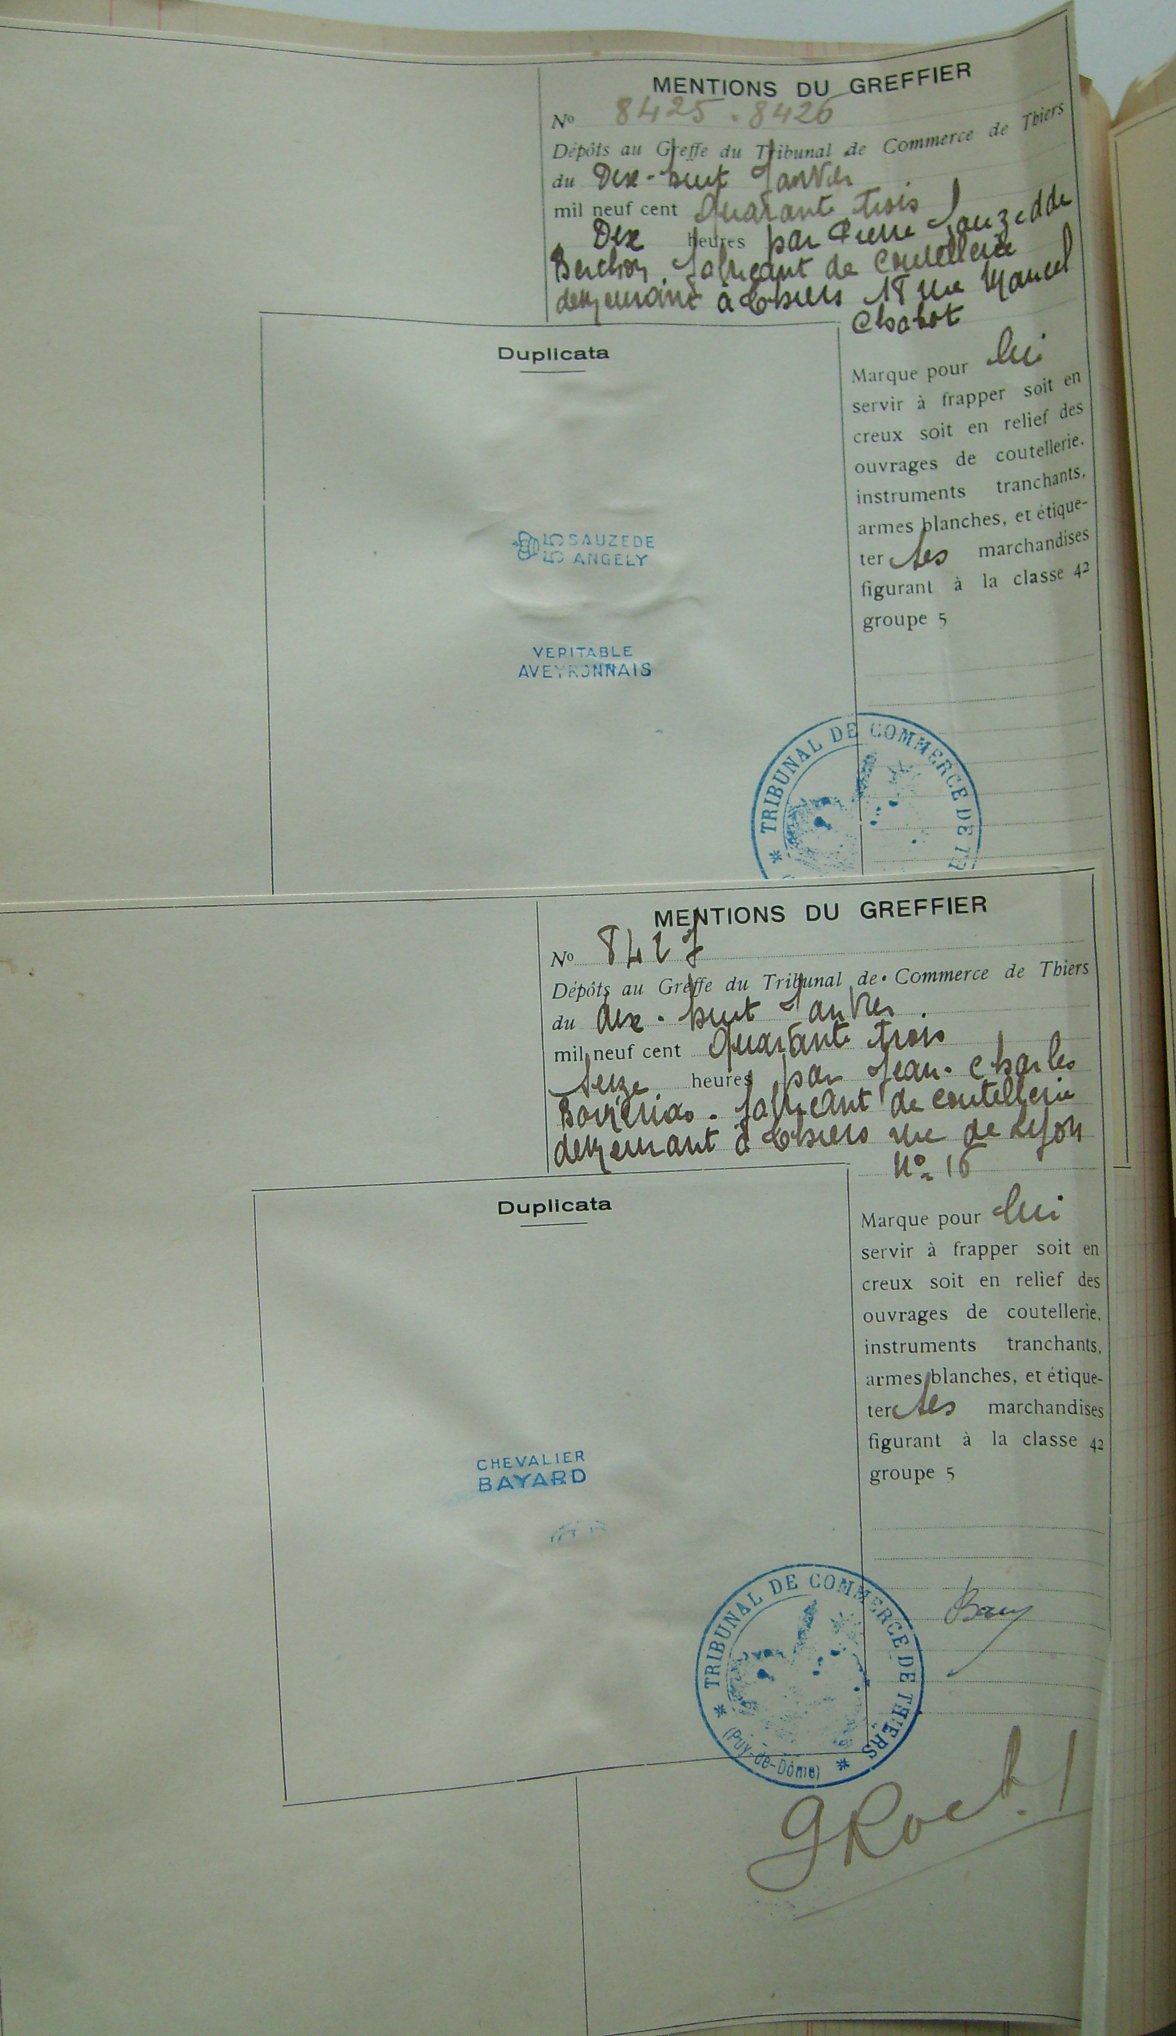 MENTIONS DU GREFFIER
No 8425.8426
Dépôts au Greffe du Tribunal de Commerce de Thiers
du Dix-huit Janvier
mil neuf cent Quarante trois
Dix heures par Pierre Sauzedde
Berchon, fabricant de coutellerie
demeurant à Thiers 18 rue Marcel
Chabot
Duplicata
Marque pour lui
servir à frapper soit en
creux soit en relief des
ouvrages de coutellerie.
instruments tranchants,
armes blanches, et étique-
ter ses marchandises
figurant à la classe 42
groupe 5
55 SAUZEDE
55 ANGELY
VERITABLE
AVEYRONNAIS
* TRIBUNAL DE COMMERCE DE TH
MENTIONS DU GREFFIER
No 8427
Dépôts au Greffe du Tribunal de Commerce de Thiers
du dix-huit Janvier
mil neuf cent Quarante trois
Seize heures par Jean-Charles
fabricant de coutellerie
demeurant à Thiers rue de Lyon
No 16
Duplicata
Marque pour lui
servir à frapper soit en
creux soit en relief des
ouvrages de coutellerie,
instruments tranchants,
armes blanches, et étique-
ter ses marchandises
figurant à la classe 42
groupe 5
CHEVALIER
BAYARD
* TRIBUNAL DE COMMERCE DE THIERS *
(Puy-de-Dôme)